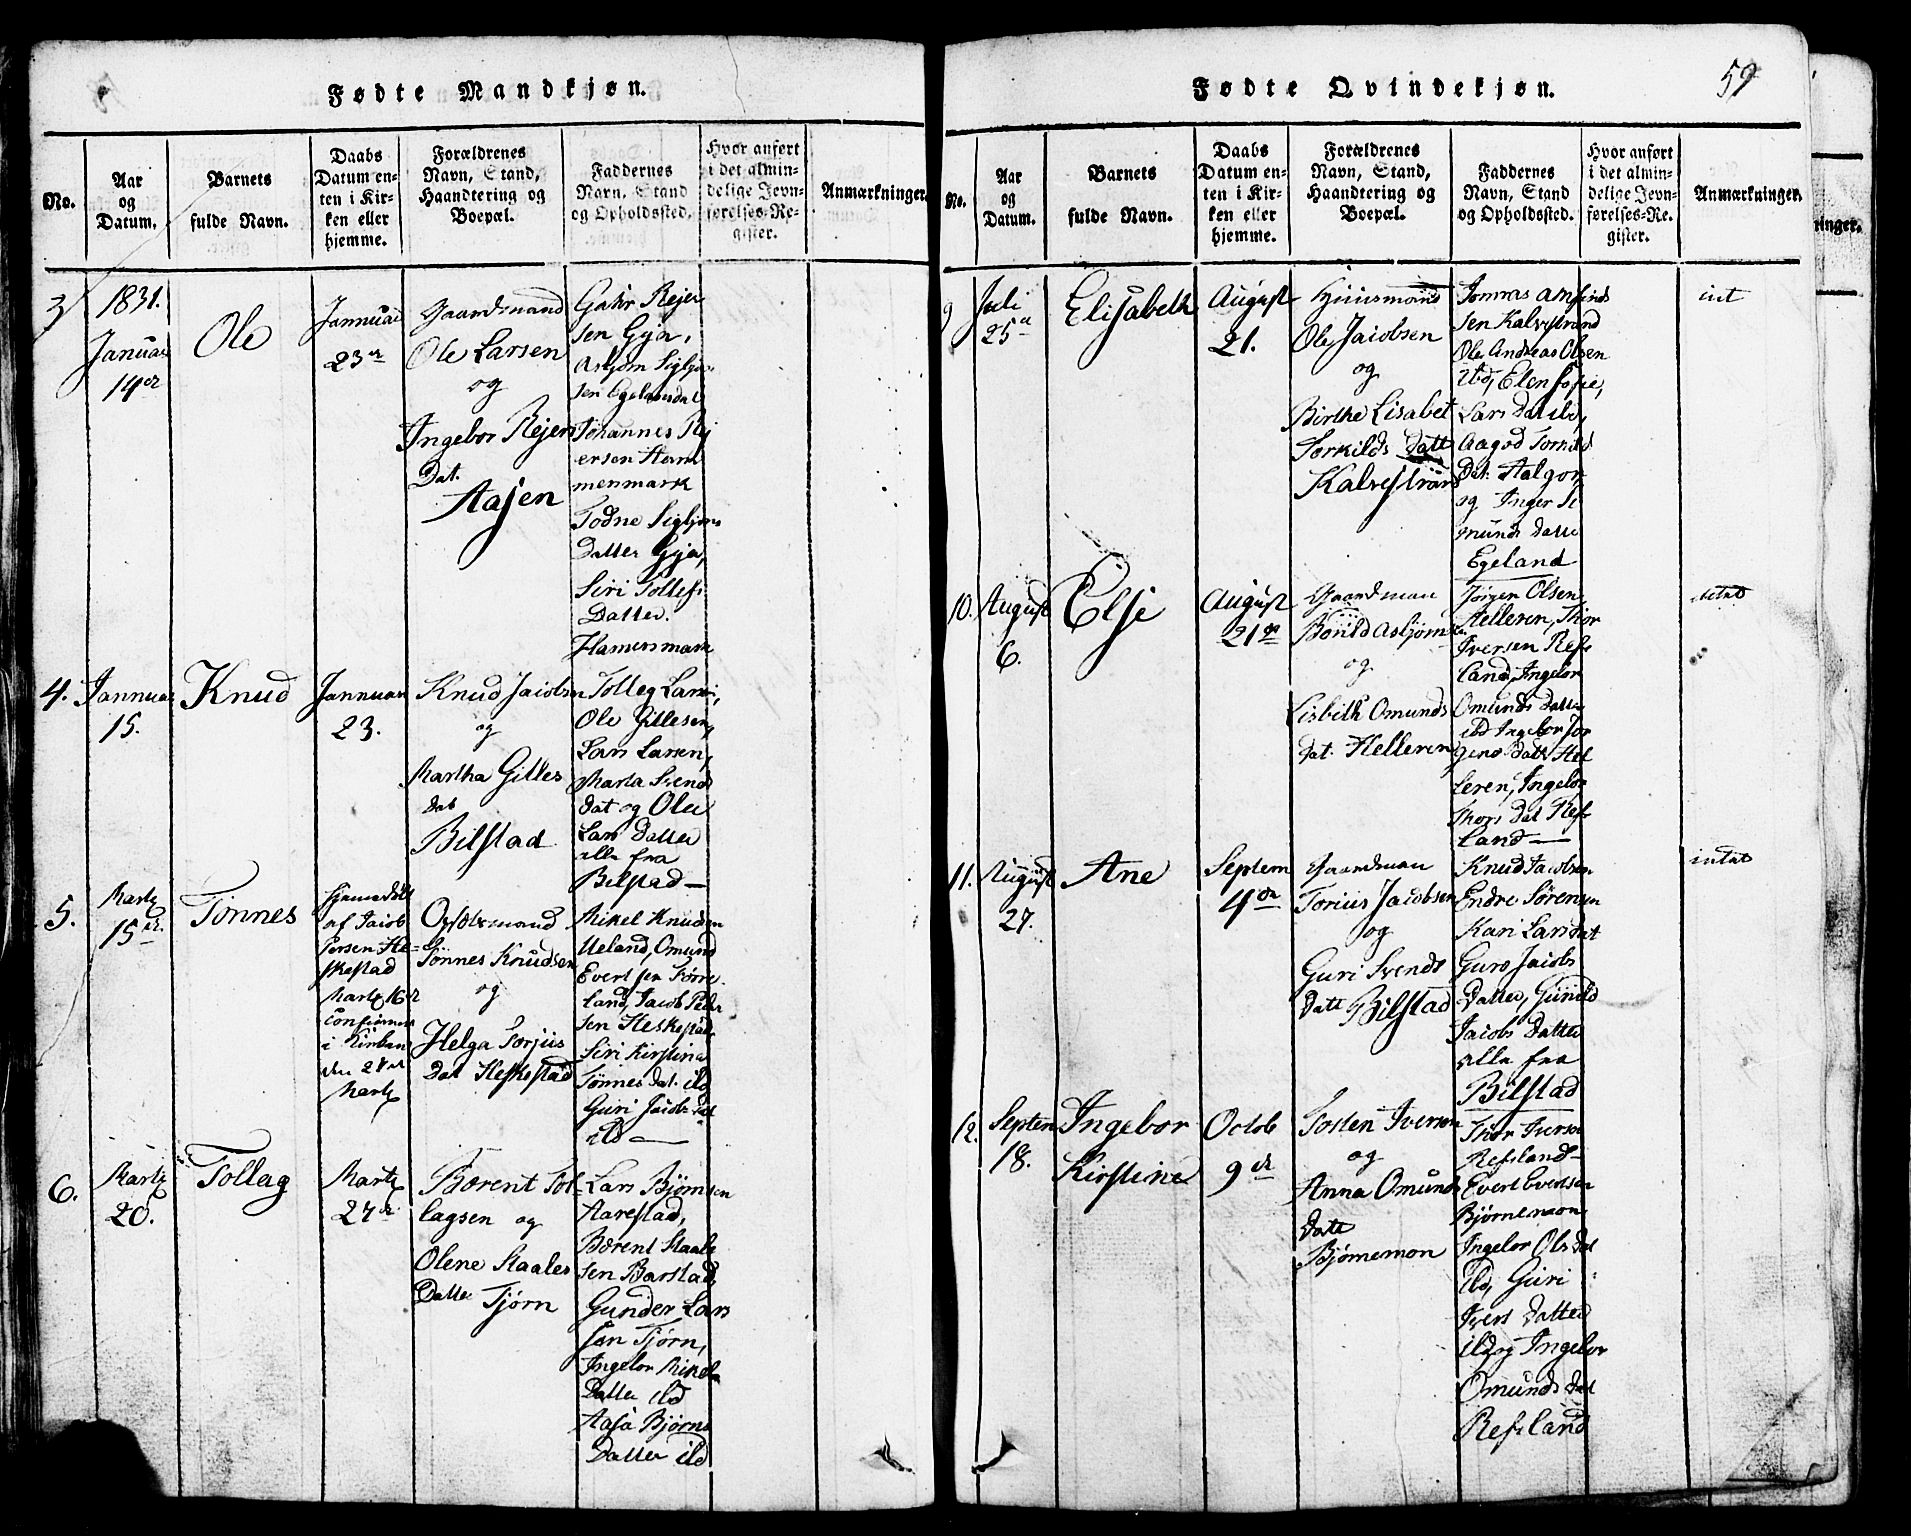 Fødte Mandkjøn.
No.
Aar
og
Datum.
Barnets
fulde Navn.
Daabs
Datum en-
ten i Kir-
ken eller
hjemme.
Forældrenes
Navn, Stand,
Haandtering og
Boepæl.
Faddernes
Navn, Stand
og Opholdssted.
Hvor anført
i det almin-
delige Jevn-
førelses-Re-
gister.
Anmærkninger.
3
1831.
Januar
14de
Ole
Jannuar
23de
Gaardmand
Ole Larsen
og
Ingebor Rejers
Dat.
Aasen
Rejer
sen Gya,
Asbjørn
sen
Johannes Rej
ersen Ham
menmark
Todne
Datter Gya,
Siri Tollefs
Datter.
Hamersmark
4.
Jannuar
15.
Knud
Jannuar
23.
Knud Jacobsen
og
Martha Gilles
dat
Bilstad
Tolleg Larsen,
Ole Gillesen,
Lars Larsen,
Marta Svends
dat og Olee
Lars Datter
alle fra
Bilstad—
5.
Martz
15de
Tønnes
Hjemmedøbt
af Jacob
Persen He-
skestad
Martz 16de
i Kirken
den 27de
Martz
Opsidermand
Tønnes Knudsen
og
Helga Torjus
Dat Heskestad
Mikel Knudsen
Ueland, Omund
Evertsen Førre
land, Jacob Peder
sen Heskestad
Siri Kirstina
Tønnes Dat. ibd
Guri Jacobs dat
ibd —
6.
Martz
20.
Tollag
Martz
27de
Bærent Tol-
lagsen og
Olene Staales
Datter Tjørn
Lars Bjørnsen
Aarestad,
Bærent Staale
sen Barstad,
Gunder Lars
sen Tjørn,
Ingebor Mikels
Datter ibd
Aasa Bjørns
Datter ibd
Fødte Qvindekjøn.
59
No.
Aar
og
Datum.
Barnets
fulde Navn.
Daabs
Datum en-
ten i Kir-
ken eller
hjemme.
Forældrenes
Navn, Stand,
Haandtering og
Boepæl.
Faddernes
Navn, Stand
og Opholdssted.
Hvor anført
i det almin-
delige Jevn-
førelses-Re-
gister.
Anmærkninger.
ninger.
9
Juli
25de
Elisabeth
August
21.
Huusmand
Ole Jacobsen
og
Birthe Lisabet
Torkilds Datt
Kalvestrand
Tomas
sen Kalvestrand
Ole Andreas Olsen
ibd, Elen Sofie
Lars Dat ibd,
Aagod
Dat.
og Inger
munds datter
Egeland
int
10.
August
6.
Elsje
August
21de
Gaardman
Asbjørnsen
og
Lisbeth Omunds
dat. Helleren
Jørgen Olsen
Helleren, Thor
Iversen Refs
land, Ingebor
Omunds Datter
ibd Ingebor Jør
gens Datt Hel
leren, Ingebor
Thors Dat Refs
land —
intet
11.
August
27.
Ane
Septem
4de
Gaardman
Torius Jacobsen
og
Guri Svends
Datt Bilstad
Knud Jacobsen
Endre Sørensen
Kari Larsdat
Guro Jacobs
Datter, Gunild
Jacobs Datter
alle fra
Bilstad
intet
12.
Septem
18.
Ingebor
Kirstine
Octob
9de
Tosten Iversen
og
Anna Omunds
Datt
Bjørnemon
Thor Iversen
Refsland—
Evert Evertsen
Bjørnemon,
Ingebor Ols Dat
ibd, Guri
Ivers Datter
ibd, og Ingebor
Omunds Dat
Refsland